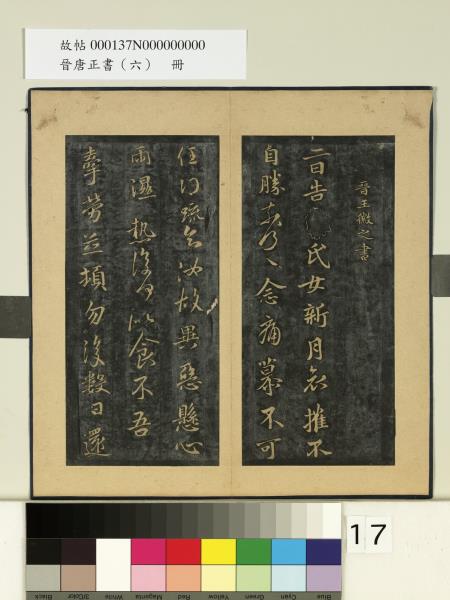 故帖 000137N000000000
晉唐正書(六) 冊
晉王徽之書
二日告氏女新月哀摧不
自勝奈何〻念痛慕不可
任得疏知汝故異惡懸心
雨濕熱復何似食不吾
牽勞並頓勿復數日還
17
Blue Cyan Green Yellow Red Magenta White 3/Color Black